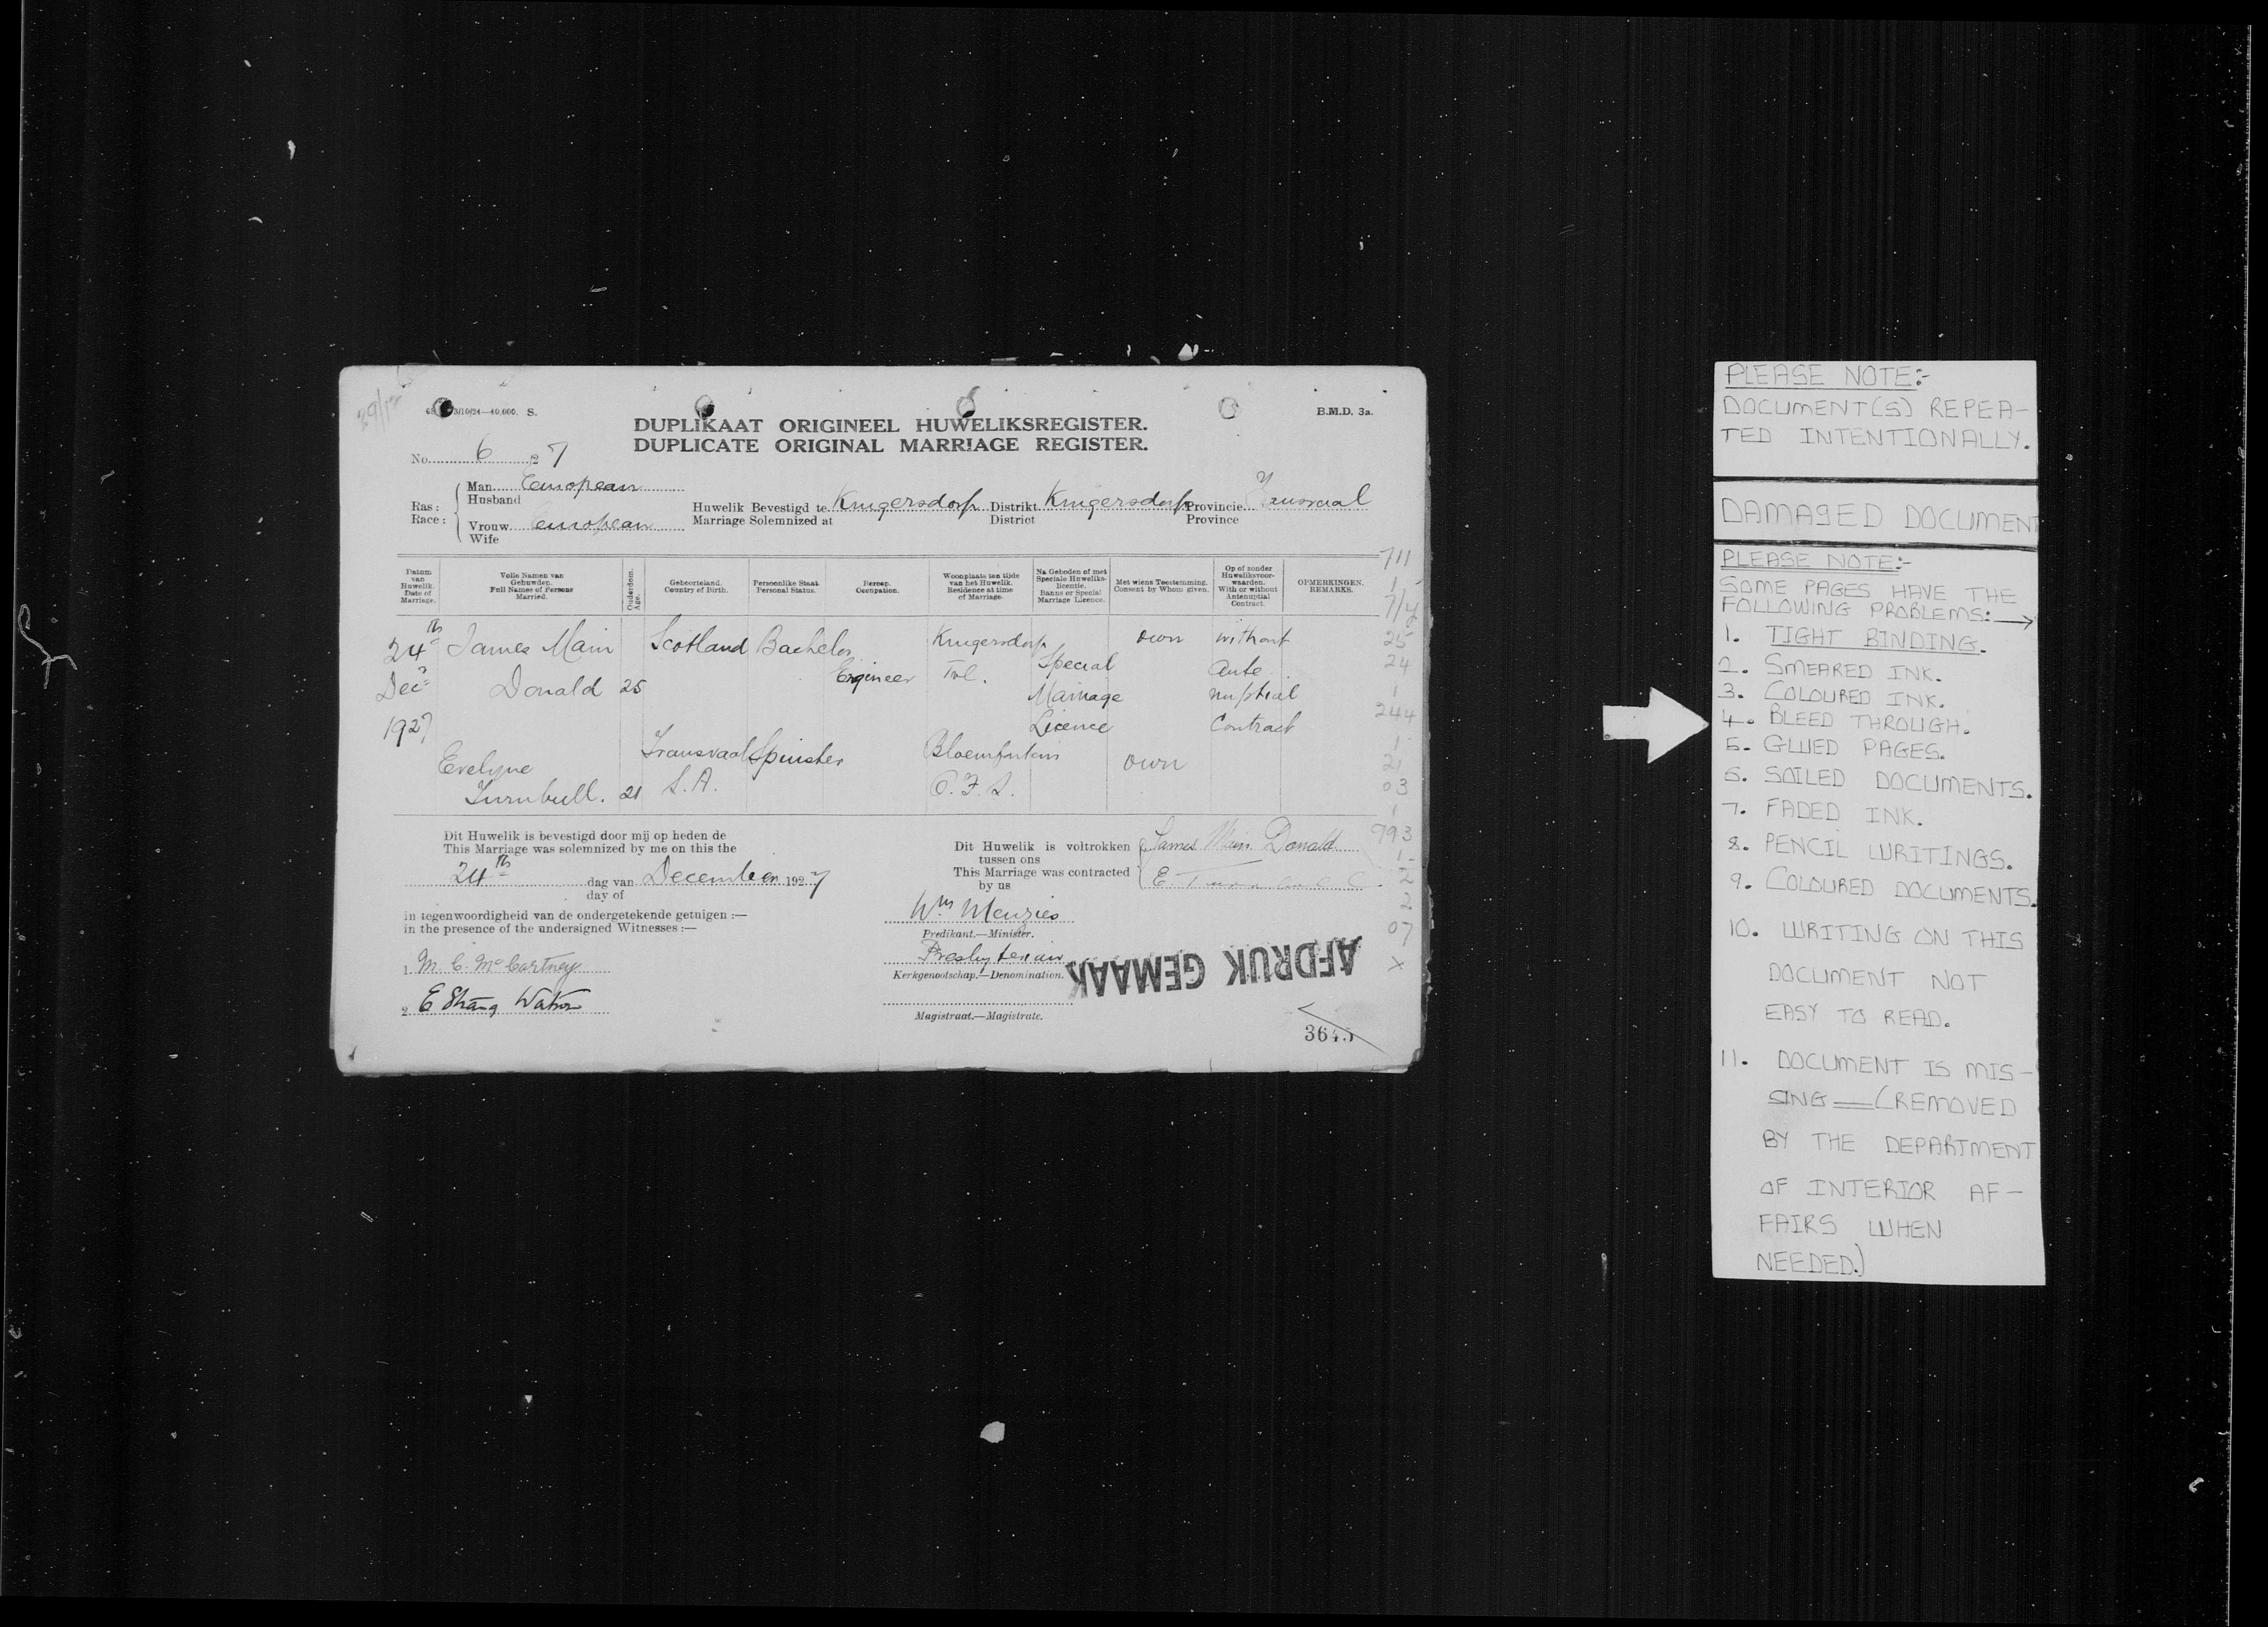 DUPLIKAAT ORIGINEEL HUWELIKSREGISTER.
DUPLICATE ORIGINAL MARRIAGE REGISTER.
B.M.D. 3a.
No. 6 27
Ras: Race:
Man European
Husband
Vrouw European
Wife
Huwelik Bevestigd te Krugersdorp Distrikt Krugersdorp Provincie Transvaal
Marriage Solemnized at District Province
Datum van Huwelik. Date of Marriage.
Volle Namen van Gehuwden. Full Names of Persons Married.
Ouderdom. Age.
Geboorteland. Country of Birth.
Persoonlike Staat. Personal Status.
Beroep. Occupation.
Woonplaats ten tijde van het Huwelik. Residence at time of Marriage.
Na Geboden of met Speciale Huweliks-licentie. Banns or Special Marriage Licence.
Met wiens Toestemming. Consent by Whom given.
Op of zonder Huweliksvoor-waarden. With or without Antenuptial Contract.
OPMERKINGEN. REMARKS.
24th Decr 1927
James Main Donald 25 Scotland Bachelor Engineer Krugersdorp Tvl. Special Marriage Licence own without Ante nuptial Contract
Evelyne Turnbull. 21 Transvaal S.A. Spinster Bloemfontein O.F.S. own
Dit Huwelik is bevestigd door mij op heden de
This Marriage was solemnized by me on this the
24th dag van December 1927
day of
in tegenwoordigheid van de ondergetekende getuigen :—
in the presence of the undersigned Witnesses :—
1. M. C. McCartney
2. E Strang Watson
Dit Huwelik is voltrokken tussen ons
This Marriage was contracted by us
James Main Donald
E. Turnbull
Wm Menzies
Predikant.—Minister.
Presbyterian
Kerkgenootschap.—Denomination.
Magistraat.—Magistrate.
AFDRUK GEMAAK
3645
711
1
7/4
25
24
1
244
1
2
03
1
993
1
2
2
07
X
PLEASE NOTE:-
DOCUMENT(S) REPEA-
TED INTENTIONALLY.
DAMAGED DOCUMENT
PLEASE NOTE:-
SOME PAGES HAVE THE
FOLLOWING PROBLEMS:
1. TIGHT BINDING.
2. SMEARED INK.
3. COLOURED INK.
4. BLEED THROUGH.
5. GLUED PAGES.
6. SOILED DOCUMENTS.
7. FADED INK.
8. PENCIL WRITINGS.
9. COLOURED DOCUMENTS.
10. WRITING ON THIS
DOCUMENT NOT
EASY TO READ.
11. DOCUMENT IS MIS-
SING—(REMOVED
BY THE DEPARTMENT
OF INTERIOR AF-
FAIRS WHEN
NEEDED.)